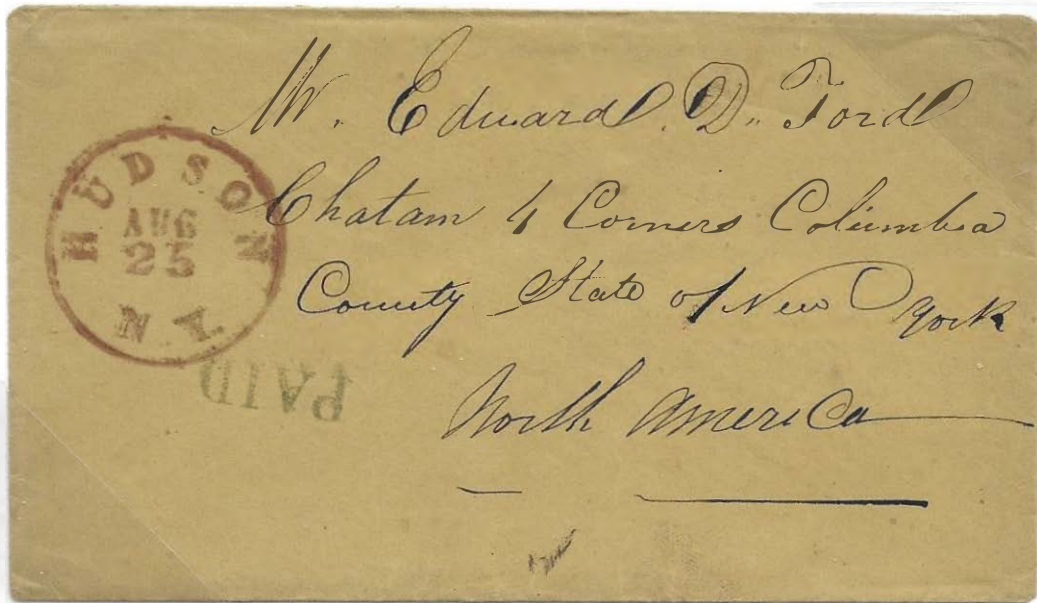 Mr. Edward. D. Ford
Chatam 4 Corners Columbia
County State of New York
North America
HUDSON
AUG
25
N.Y.
PAID